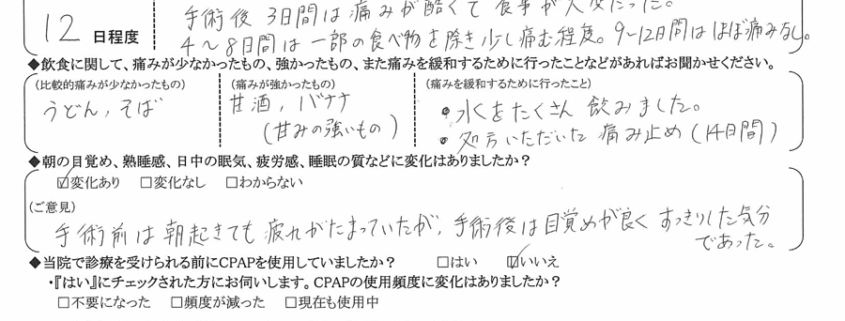 手術後 3日間は痛みが酷くて食事が大変だった。
12 日程度
4〜8日間は一部の食べ物を除き少し痛む程度。9〜12日間はほぼ痛みなし。
◆飲食に関して、痛みが少なかったもの、強かったもの、また痛みを緩和するために行ったことなどがあればお聞かせください。
(比較的痛みが少なかったもの) (痛みが強かったもの) (痛みを緩和するために行ったこと)
うどん, そば 甘酒, バナナ ・水をたくさん飲みました。
(甘みの強いもの) ・処方いただいた痛み止め(14日間)
◆朝の目覚め、熟睡感、日中の眠気、疲労感、睡眠の質などに変化はありましたか?
☑変化あり □変化なし □わからない
(ご意見)
手術前は朝起きても疲れがたまっていたが, 手術後は目覚めが良くすっきりした気分
であった。
◆当院で診療を受けられる前にCPAPを使用していましたか? □はい ☑いいえ
・『はい』にチェックされた方にお伺いします。CPAPの使用頻度に変化はありましたか?
□不要になった □頻度が減った □現在も使用中